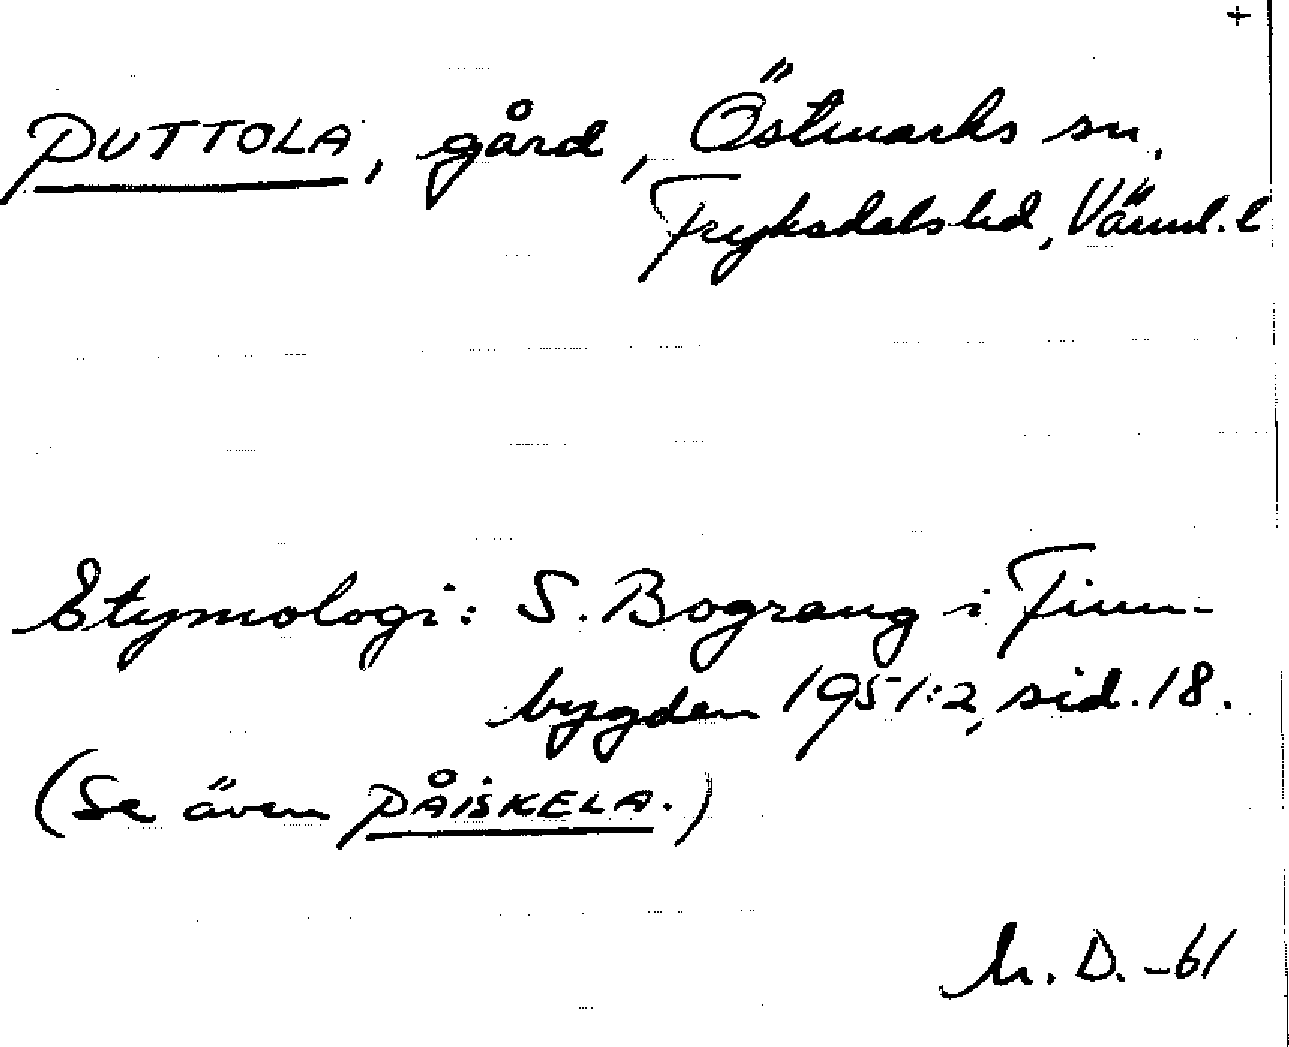 +
PUTTOLA, gård, Östmarks sn,
Fryksdals hd, Värml. l
Etymologi: S. Bograng i Finn-
bygden 1951:2, sid. 18.
(Se även PÅISKELA.)
h. D. -61